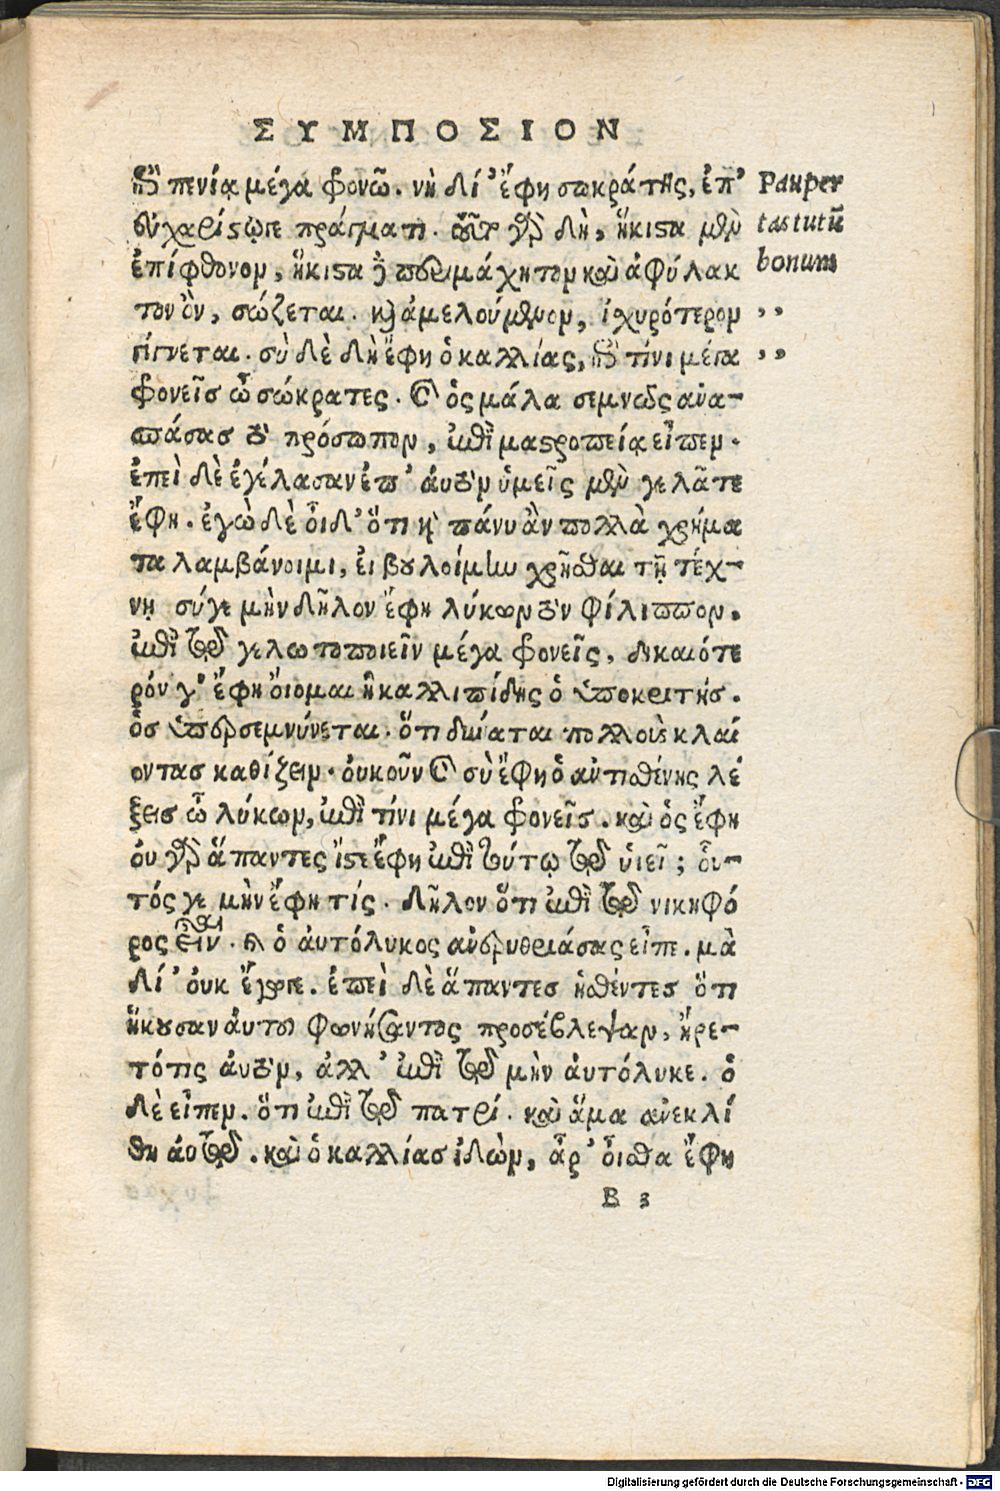 ΣΥΜΠΟΣΙΟΝ
πενίᾳ μέγα φρονῶ. νὴ δί' ἔφη σωκράτης, ἐπ'
εὐχαρίστῳγε πράγματι. τοῦτο γὰρ δὴ, ἥκιστα μὲν
ἐπίφθονον, ἥκιστα δὲ περιμάχητον καὶ ἀφύλακ
τον ὂν, σώζεται. καὶ ἀμελούμενον, ἰσχυρότερον
γίγνεται. σὺ δὲ δὴ ἔφη ὁ καλλίας, ἐπὶ τίνι μέγα
φρονεῖς ὦ σώκρατες. καὶ ὃς μάλα σεμνῶς ἀνα-
σπάσας τὸ πρόσωπον, ἐπὶ μαστροπείᾳ εἶπεν.
ἐπεὶ δὲ ἐγέλασαν ἐπ' ἀυτῷ, ὑμεῖς μὲν γελᾶτε
ἔφη. ἐγὼ δὲ οἶδ' ὅτι καὶ πάνυ ἂν πολλὰ χρήμα
τα λαμβάνοιμι, ἐι βουλοίμην χρῆσθαι τῇ τέχ-
νῃ σύγε μὴν δῆλον ἔφη λύκων τὸν φίλιππον.
ἐπὶ τῷ γελωτοποιεῖν μέγα φρονεῖς, δικαιότε
ρόν γ' ἔφη ὄιομαι ἢ καλλιπίδης ὁ ὑποκριτής.
ὃς ὑπερσεμνύνεται. ὅτι δύναται πολλοὺς κλαί
οντας καθίζειν. ὀυκοῦν καὶ σὺ ἔφη ὁ ἀντισθένης λέ
ξεις ὦ λύκων, ἐπὶ τίνι μέγα φρονεῖς. καὶ ὃς ἔφη
ὀυ γὰρ ἅπαντες ἴστε ἔφη ἐπὶ τούτῳ τῷ ὑιεῖ; οὗ-
τός γε μὴν ἔφη τίς. δῆλον ὅτι ἐπὶ τῷ νικηφό
ρος εἶναι. καὶ ὁ ἀυτόλυκος ἀνερυθριάσας εἶπε. μὰ
δί' ὀυκ ἔγωγε. ἐπεὶ δὲ ἅπαντες ἡσθέντες ὅτι
ἤκουσαν ἀυτοῦ φωνήσαντος προσέβλεψαν, ἤρε-
τό τις ἀυτὸν, ἀλλ' ἐπὶ τῷ μὴν ἀυτόλυκε. ὁ
δὲ εἶπεν. ὅτι ἐπὶ τῷ πατρί. καὶ ἅμα ἀνεκλί
θη ἀυτῷ. καὶ ὁ καλλίας ἰδὼν, ἆρ' οἶσθα ἔφη
B 3
Pauper
tas tutū
bonum
,,
,,
Digitalisierung gefördert durch die Deutsche Forschungsgemeinschaft - DFG